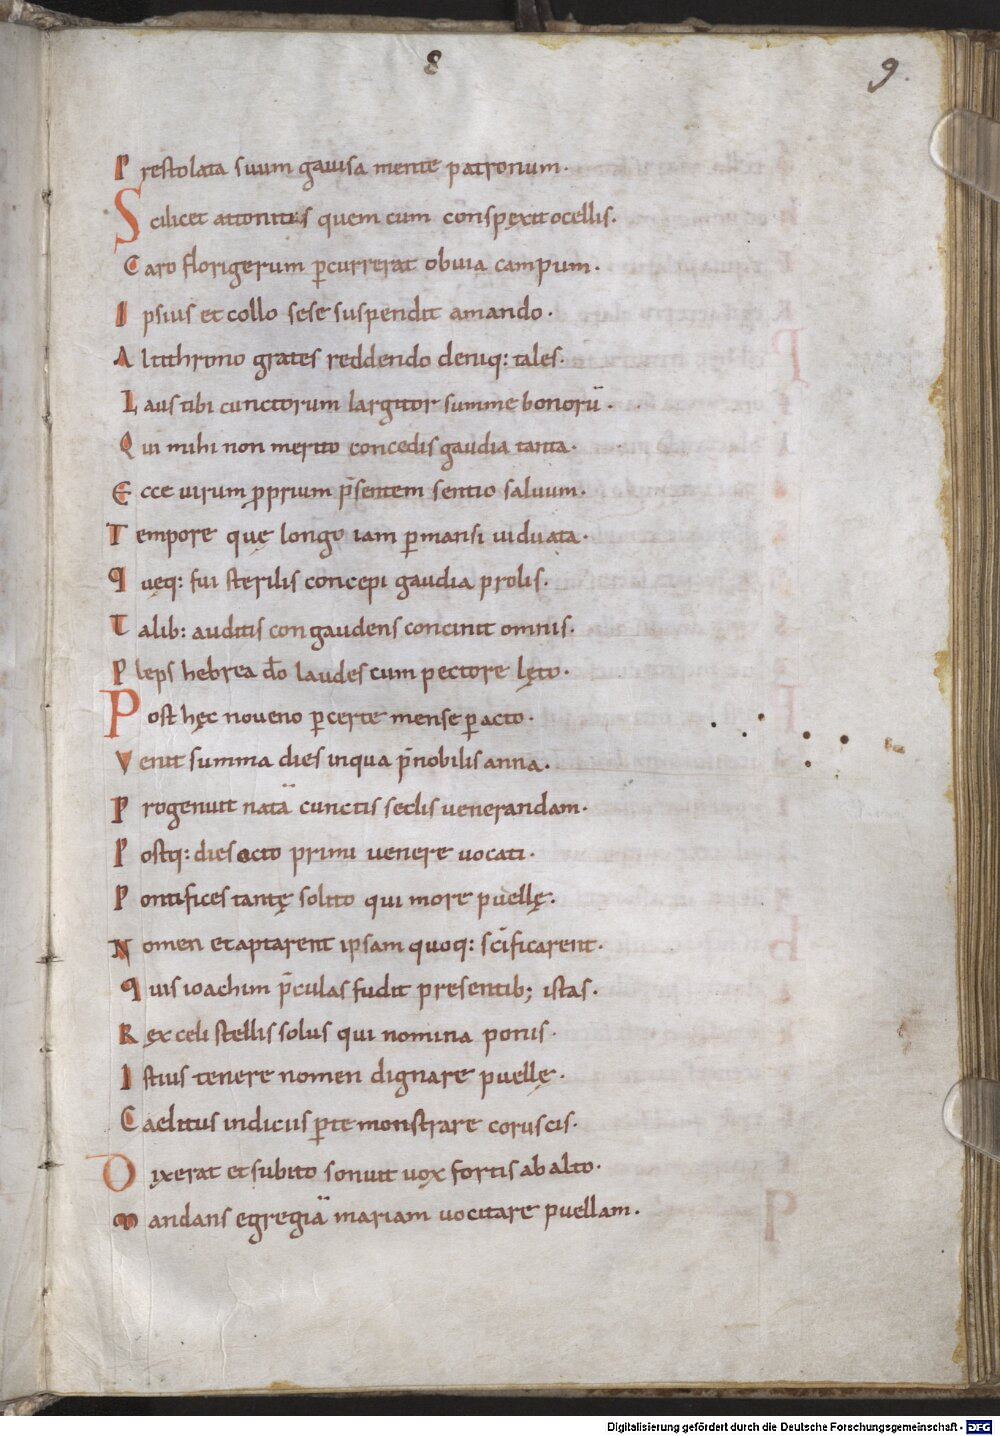 8
9.
Prestolata suum gauisa mente patronum·
Scilicet attonitis quem cum conspexit ocellis·
Caro florigerum ꝑcurrerat obuia campum·
Ipsius et collo sese suspendit amando·
Altithrono grates reddendo deniq: tales·
Laus tibi cunctorum largitor summe bonorū·
Qui mihi non merito concedis gaudia tanta·
Ecce uirum ꝓprium p̄sentem sentio saluum·
Tempore quę longo iam ꝑmansi uiduata·
Quęq: fui sterilis concepi gaudia prolis·
Talib: auditis congaudens concinit omnis·
Pleps hebrea dō laudes cum pectore lęto·
Post hęc noueno ꝑcerte mense ꝑacto·
Venit summa dies inqua p̄nobilis anna·
Progenuit natā cunctis seclis uenerandam·
Postq: dies octo primi uenere uocati·
Pontifices tantę solito qui more puellę·
Nomen et aptarent ipsam quoq: sc̄ificarent·
Quis ioachim p̄culas fudit presentib; istas·
Rex celi stellis solus qui nomina ponis·
Istius tenere nomen dignare puellę·
Caelitus indiciis ꝑte monstrare coruscis·
Dixerat et subito sonuit uox fortis ab alto·
Mandans egregiā mariam uocitare puellam·
Digitalisierung gefördert durch die Deutsche Forschungsgemeinschaft - DFG